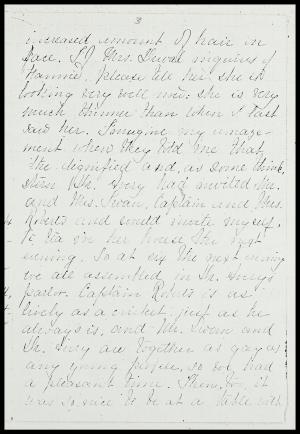 3
increased amount of hair in
face. If Mrs. Swan inquires of
Hannie, please tell her she is
looking very well now; she is very
much thinner than when I last
saw her. Imagine my amaze-
ment when they told me that
the dignified and, as some think,
stern Dr. had invited Mr.
and Mrs. Swan, Captain and Mrs.
Roberts and would invite myself,
to tea in her house the next
evening. So at six the next evening
we are assembled in Dr.
parlor. Captain Roberts is as
lively as a cricket, just as he
always is, and Mr. Swan and
Dr. are together as gay as
any young people, so we had
a pleasant time. Then, too, it
was so nice to be at a table with